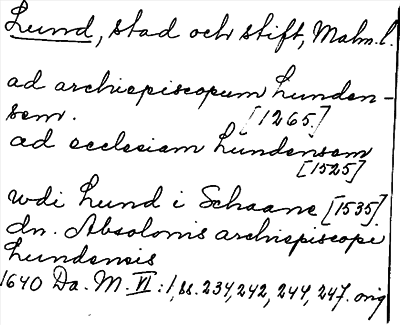 Lund, stad och stift, Malm.l.
ad archiepiscopum Lunden-
sem. [1265]
ad ecclesiam Lundensem
[1525]
wdi Lund i Schaane [1535]
dn. Absolonis archiepiscopi
Lundensis
1640 Da. M. VI:1, ss. 234, 242, 244, 247. orig